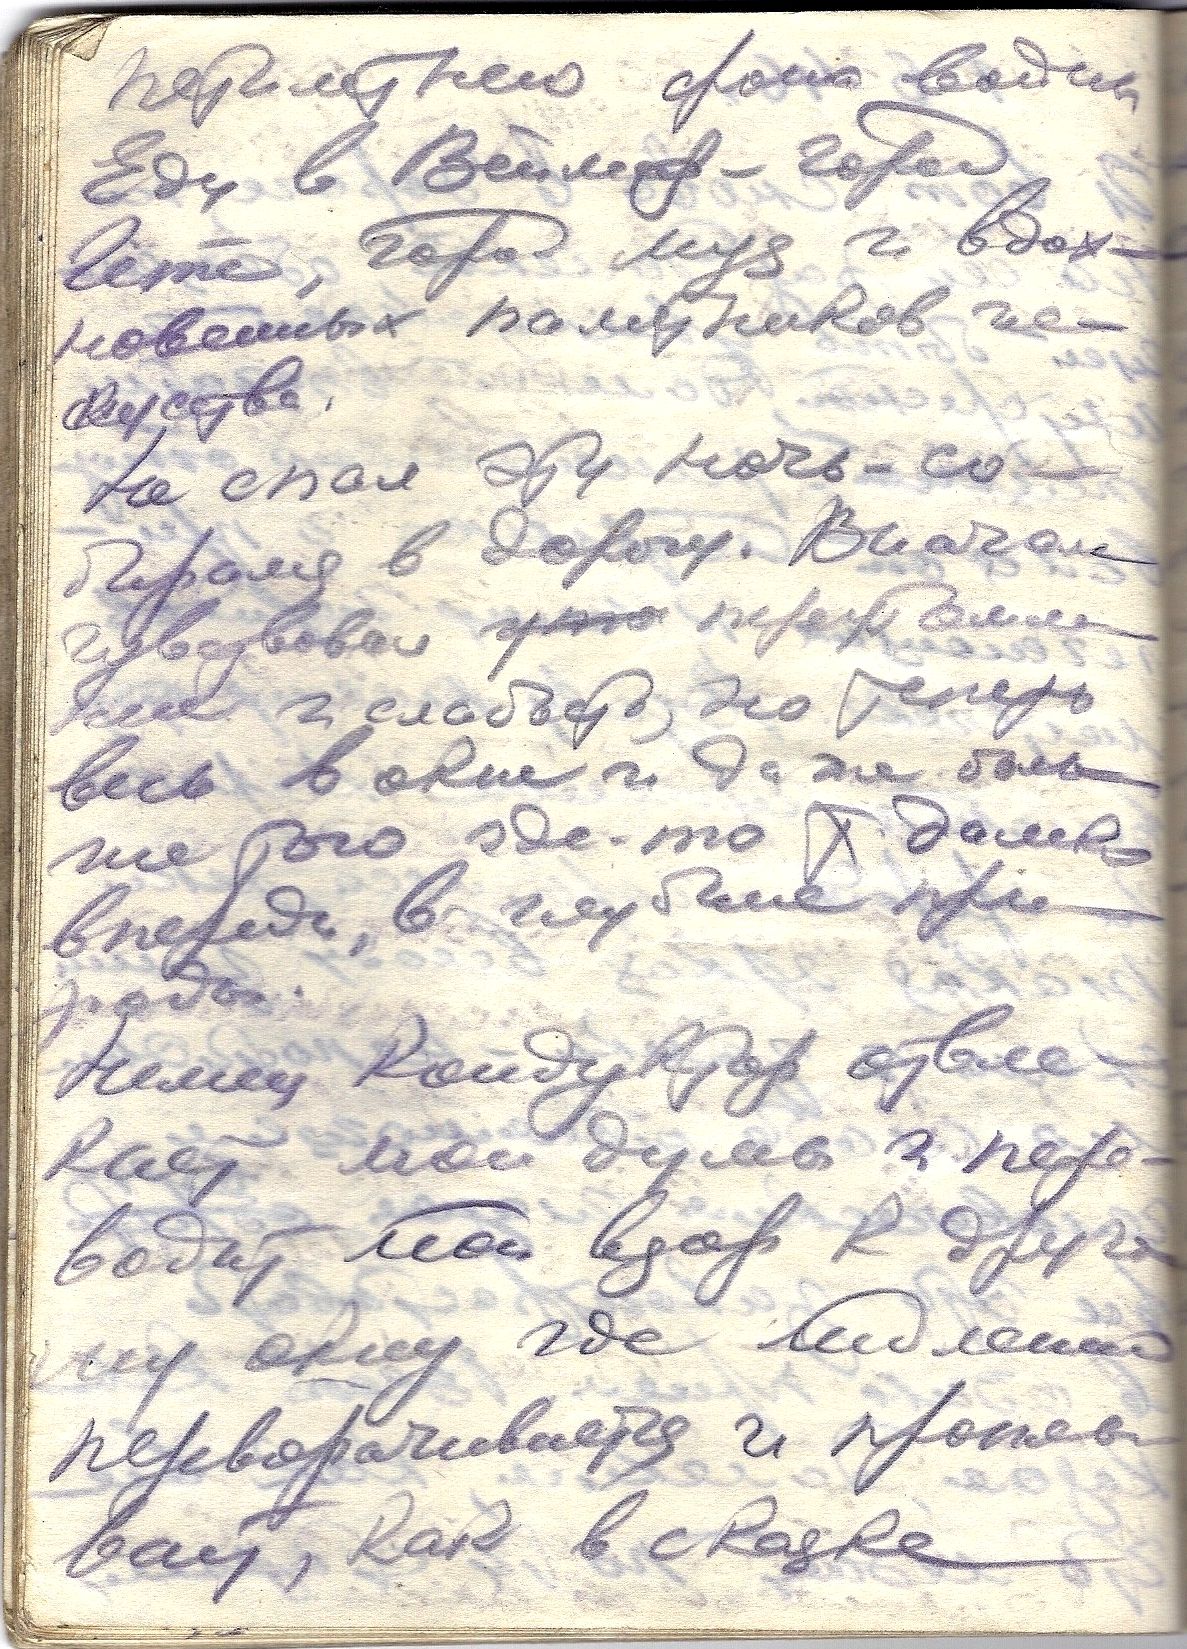 Еду в Веймар - город
Гете, город муз и вдох-
новенных памятников ис-
кусства.
Не спал эту ночь - со-
бирался в дорогу. Вначале
чувствовал
и слабость, но теперь
весь в окне и даже боль
ше того где-то далеко
впереди, в глубине при-
роды.
Немец кондуктор отвле-
кает мои думы и пере-
водит мой взор к друго
му окну где
переворачивается и проплы
вает, как в сказке